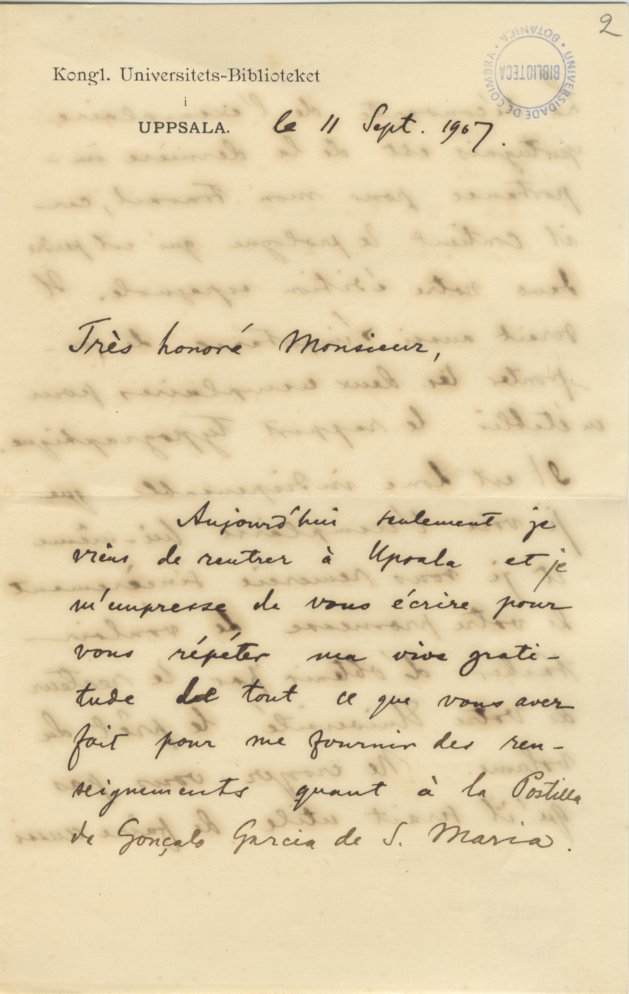 2
UNIVERSIDADE DE COIMBRA • BOTANICA •
BIBLIOTECA
Kongl. Universitets-Biblioteket
i
UPPSALA. le 11 Sept. 1907.
Très honoré Monsieur,
Aujourd'hui seulement je
viens de rentrer à Upsala et je
m'empresse de vous écrire pour
vous répéter ma vive grati-
tude de tout ce que vous aver
fait pour me fournir des ren-
seignements quant à la Postilla
de Gonçalo Garcia de S. Maria.